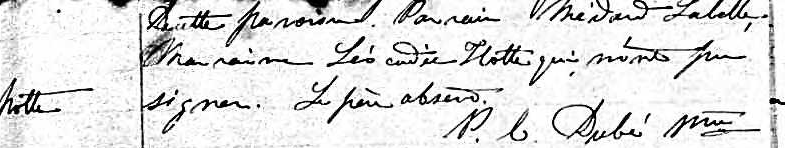 De cette paroisse. Parrain Médard Labelle,
Marraine Léocadie Hotte qui n'ont pu
signer. Le père absent.
Hotte
P. C. Dubé Ptre